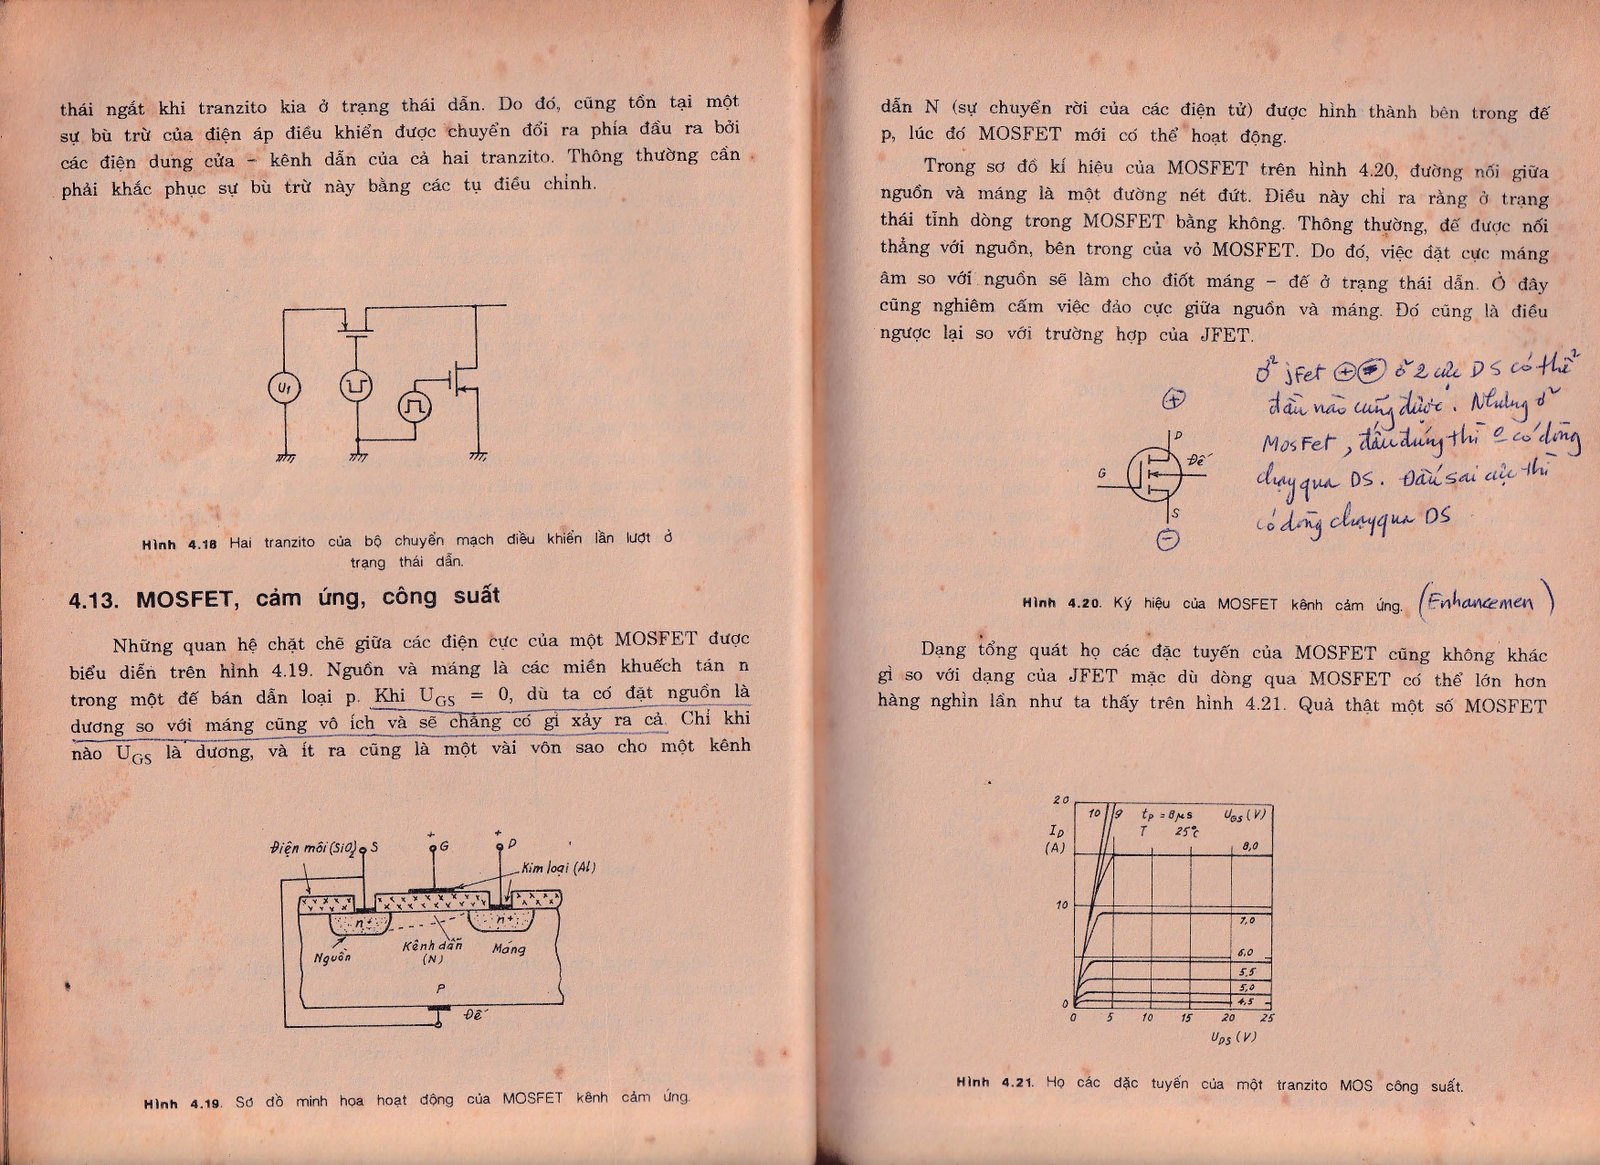 thái ngắt khi tranzito kia ở trạng thái dẫn. Do đó, cũng tồn tại một
sự bù trừ của điện áp điều khiển được chuyển đổi ra phía đầu ra bởi
các điện dung cửa – kênh dẫn của cả hai tranzito. Thông thường cần
phải khắc phục sự bù trừ này bằng các tụ điều chỉnh.
U1
Hình 4.18 Hai tranzito của bộ chuyển mạch điều khiển lần lượt ở
trạng thái dẫn.
4.13. MOSFET, cảm ứng, công suất
Những quan hệ chặt chẽ giữa các điện cực của một MOSFET được
biểu diễn trên hình 4.19. Nguồn và máng là các miền khuếch tán n
trong một đế bán dẫn loại p. Khi UGS = 0, dù ta có đặt nguồn là
dương so với máng cũng vô ích và sẽ chẳng có gì xảy ra cả. Chỉ khi
nào UGS là dương, và ít ra cũng là một vài vôn sao cho một kênh
+ +
Điện môi (SiO2) S G D
Kim loại (Al)
n+ n+
Nguồn Kênh dẫn Máng
(N)
P
Đế
Hình 4.19. Sơ đồ minh họa hoạt động của MOSFET kênh cảm ứng.
dẫn N (sự chuyển rời của các điện tử) được hình thành bên trong đế
p, lúc đó MOSFET mới có thể hoạt động.
Trong sơ đồ kí hiệu của MOSFET trên hình 4.20, đường nối giữa
nguồn và máng là một đường nét đứt. Điều này chỉ ra rằng ở trạng
thái tĩnh dòng trong MOSFET bằng không. Thông thường, đế được nối
thẳng với nguồn, bên trong của vỏ MOSFET. Do đó, việc đặt cực máng
âm so với nguồn sẽ làm cho điốt máng – đế ở trạng thái dẫn. Ở đây
cũng nghiêm cấm việc đảo cực giữa nguồn và máng. Đó cũng là điều
ngược lại so với trường hợp của JFET.
ở jFet + - ở 2 cực DS có thể
đấu nào cũng được. Nhưng ở
MosFet, đấu đúng thì o có dòng
chạy qua DS. Đấu sai cực thì
có dòng chạy qua DS
+
D
Đế
G
S
−
Hình 4.20. Ký hiệu của MOSFET kênh cảm ứng. (Enhancemen)
Dạng tổng quát họ các đặc tuyến của MOSFET cũng không khác
gì so với dạng của JFET mặc dù dòng qua MOSFET có thể lớn hơn
hàng nghìn lần như ta thấy trên hình 4.21. Quả thật một số MOSFET
20 10 9 tP = 8µs UGS (V)
ID T 25°C
(A) 8,0
10
7,0
6,0
5,5
5,0
0 4,5
0 5 10 15 20 25
UDS (V)
Hình 4.21. Họ các đặc tuyến của một tranzito MOS công suất.